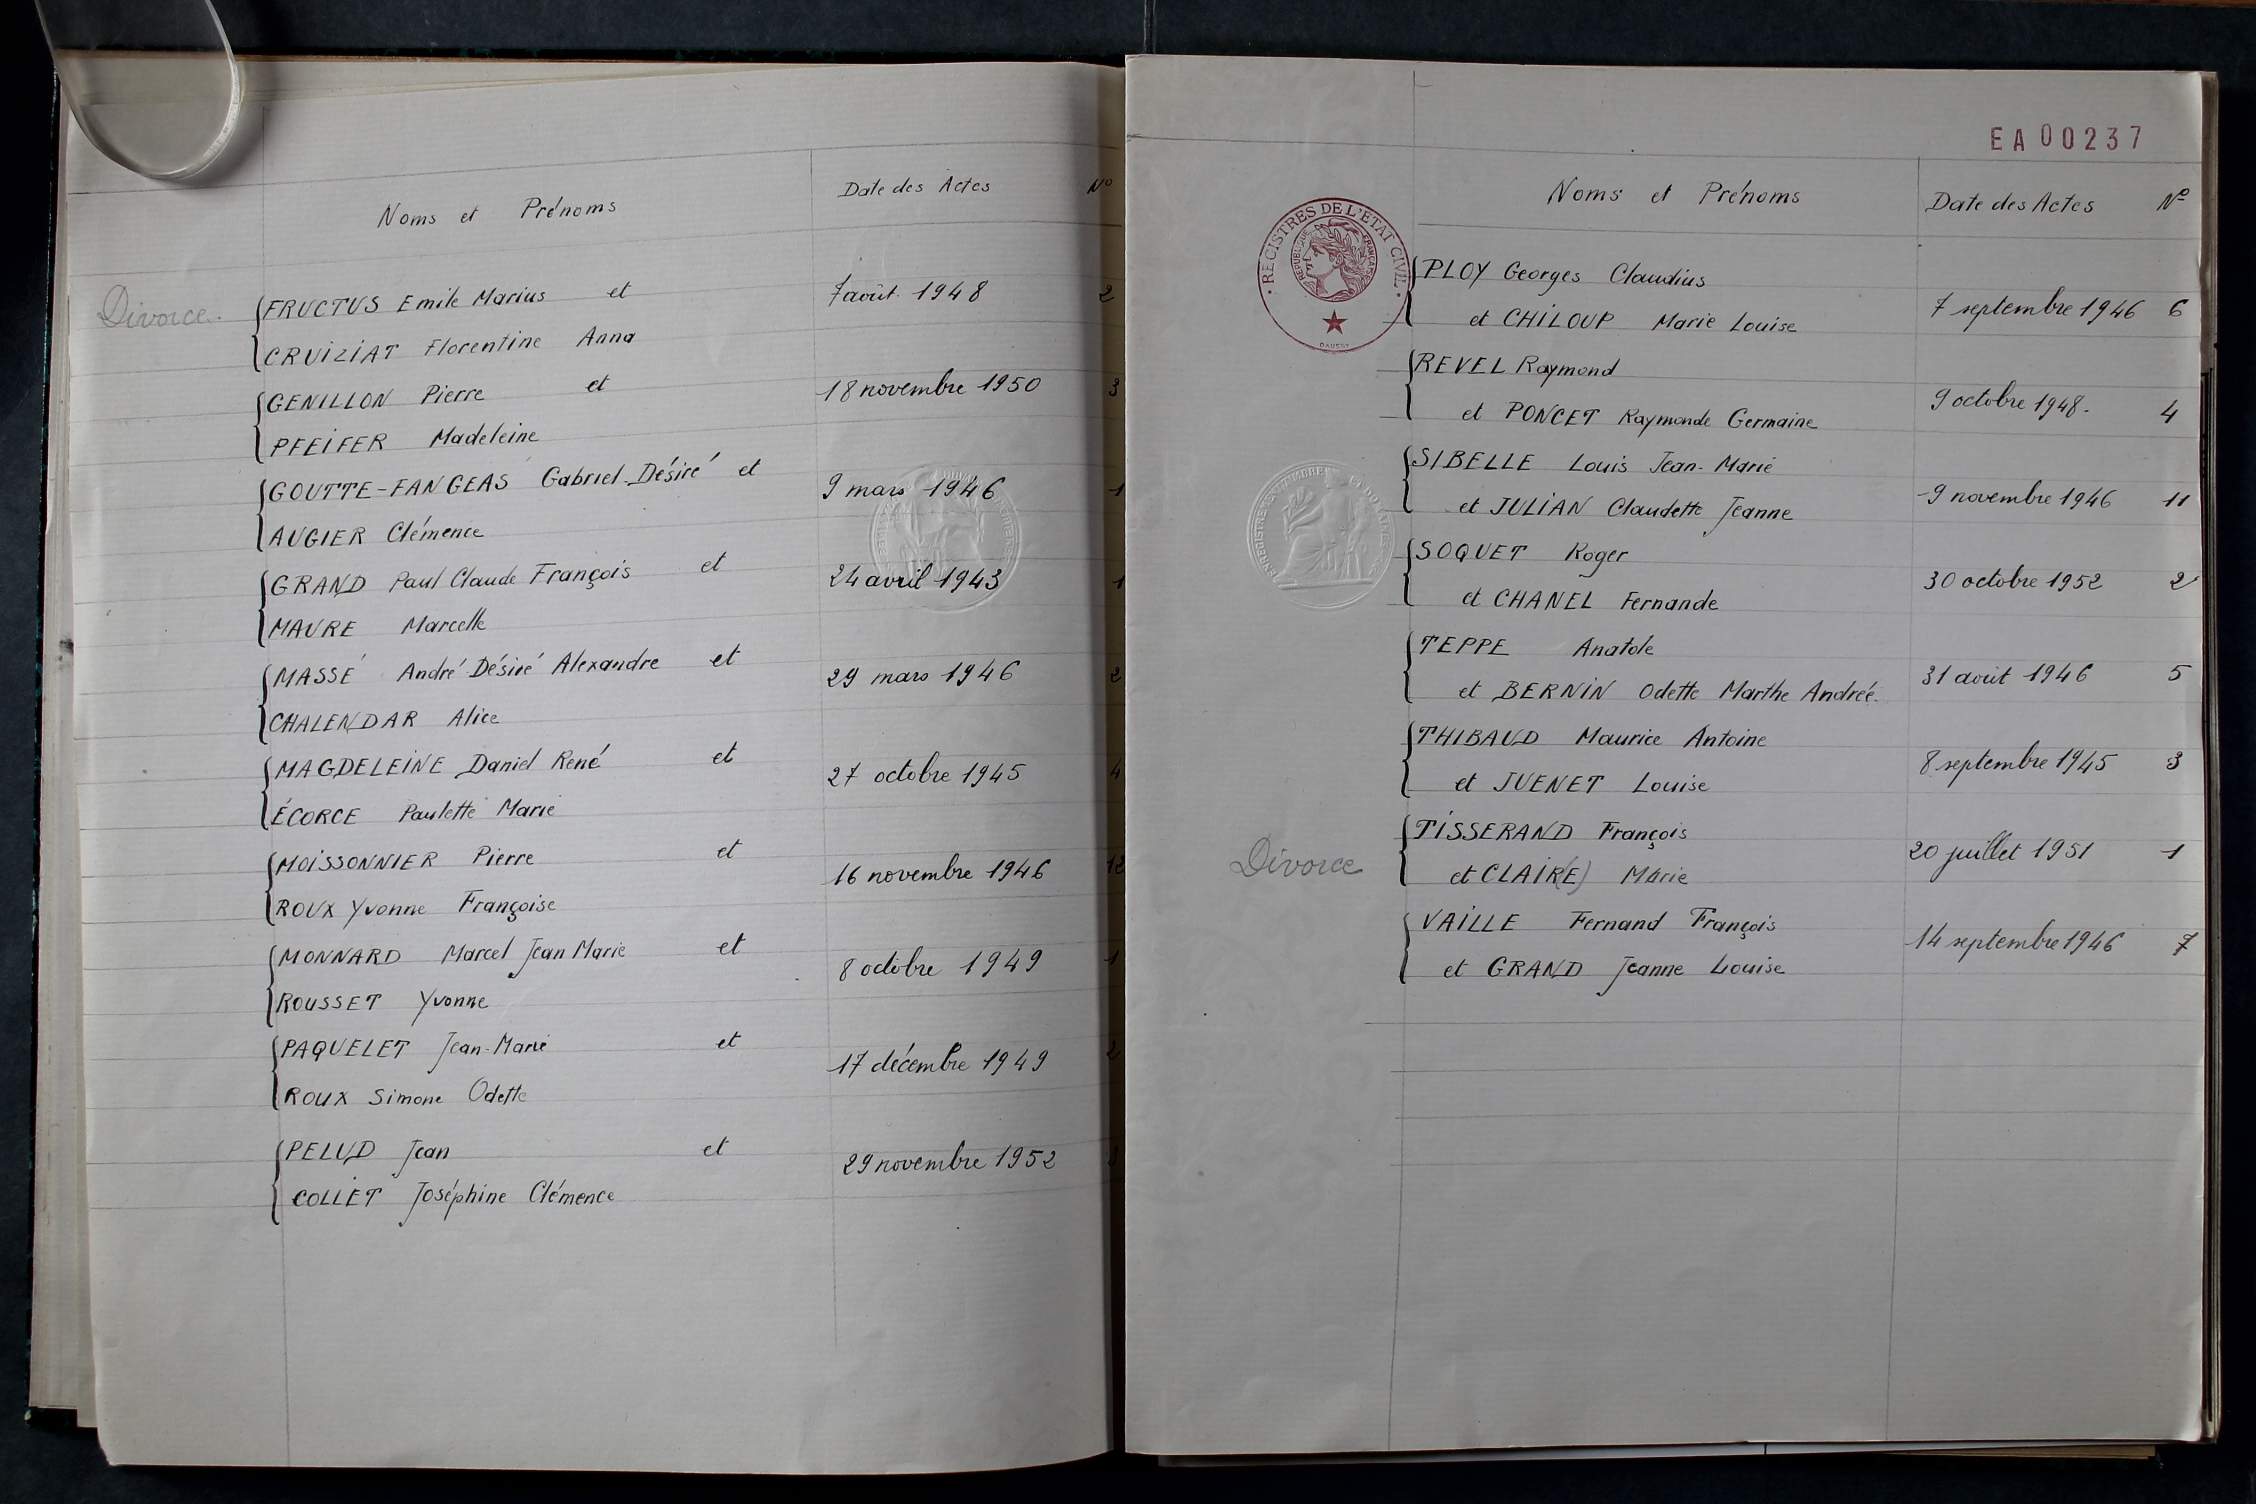 Noms et Prénoms Date des Actes No
Divorce. FRUCTUS Emile Marius et 7 août 1948 2
CRUIZIAT Florentine Anna
GENILLON Pierre et 18 novembre 1950 3
PFEIFER Madeleine
GOUTTE-FANGEAS Gabriel-Désiré et 9 mars 1946 1
AUGIER Clémence
GRAND Paul Claude François et 24 avril 1943 1
MAURE Marcelle
MASSÉ André Désiré Alexandre et 29 mars 1946 2
CHALENDAR Alice
MAGDELEINE Daniel René et 27 octobre 1945 4
ÉCORCE Paulette Marie
MOISSONNIER Pierre et 16 novembre 1946 12
ROUX Yvonne Françoise
MONNARD Marcel Jean Marie et 8 octobre 1949 1
ROUSSET Yvonne
PAQUELET Jean-Marie et 17 décembre 1949 2
ROUX Simone Odette
PELUD Jean et 29 novembre 1952
COLLET Joséphine Clémence
EA00237
Noms et Prénoms Date des Actes No
REGISTRES DE L'ETAT CIVIL
REPUBLIQUE FRANÇAISE
PLOY Georges Claudius
et CHILOUP Marie Louise 7 septembre 1946 6
REVEL Raymond
et PONCET Raymonde Germaine 9 octobre 1948. 4
SIBELLE Louis Jean-Marie
et JULIAN Claudette Jeanne 9 novembre 1946 11
SOQUET Roger
et CHANEL Fernande 30 octobre 1952 2
TEPPE Anatole
et BERNIN Odette Marthe Andrée. 31 août 1946 5
THIBAUD Maurice Antoine
et JUENET Louise 8 septembre 1945 3
TISSERAND François
Divorce et CLAIR(E) Marie 20 juillet 1951 1
VAILLE Fernand François
et GRAND Jeanne Louise 14 septembre 1946 7